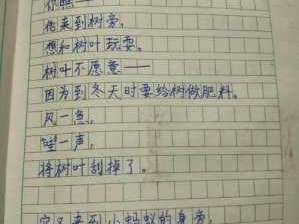 你瞧——
他来到树旁，
想和树叶玩耍。
树叶不愿意——
因为到冬天时要给树做肥料。
风一急，
一声，
将树叶刮掉了。
它又来到小蚂蚁的身旁，